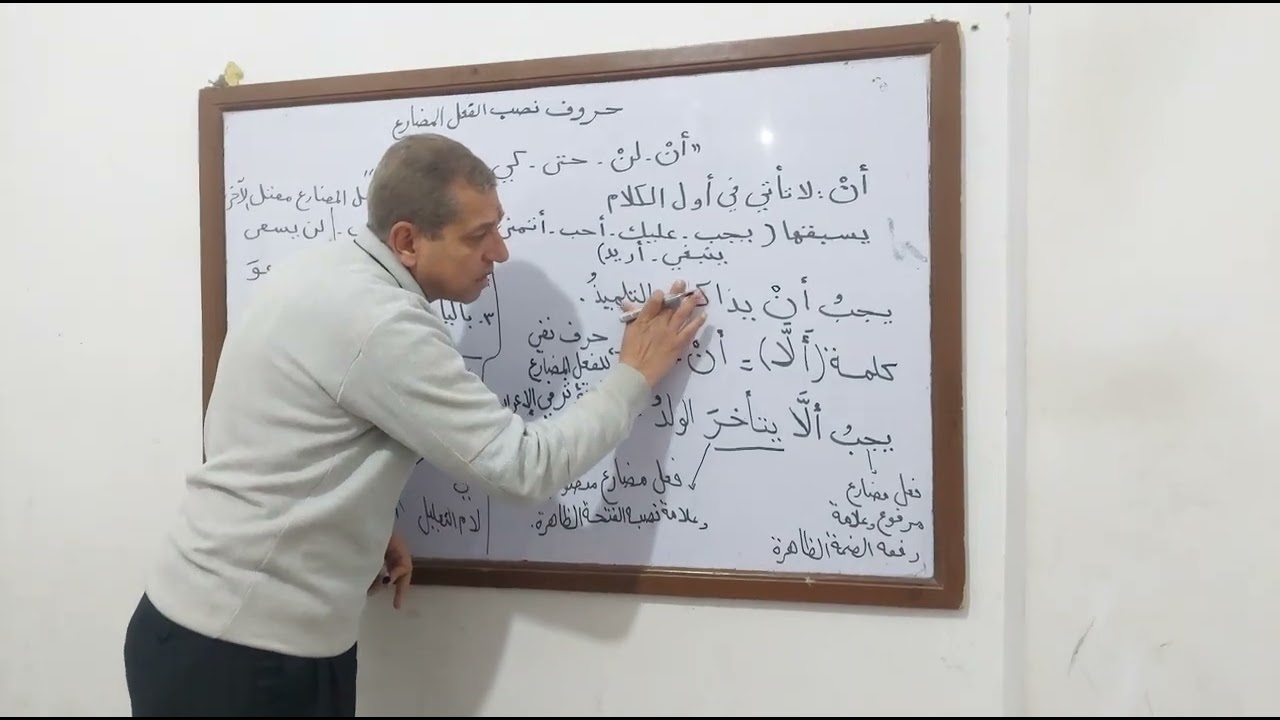 حروف نصب الفعل المضارع
"أنْ - لنْ - حتى - كي
أنْ: لا تأتي في أول الكلام
يسبقها (يجب - عليك - أحب - أتمنى
ينبغي - أريد)
يجبُ أنْ يذاكر التلميذُ.
كلمة (أَلَّا) = أنْ
حرف نفي
للفعل المضارع
في الإعراب
يجبُ ألَّا يتأخرَ الولدُ
فعل مضارع
مرفوع وعلامة
رفعه الضمة الظاهرة
فعل مضارع
وعلامة نصبه الفتحة الظاهرة.
المضارع معتل الآخر
لن يسعى
٣. باليا
لام التعليل